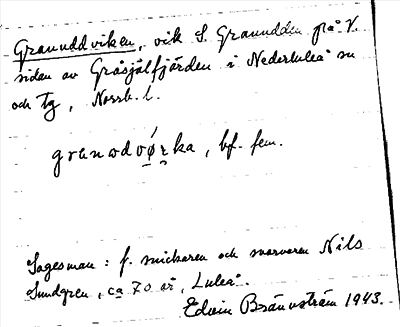 Granuddviken, vik S. Granudden på V.
sidan av Gråsjälfjärden i Nederluleå sn
och tg, Norrb. l.
granudvø̱rka, bf. fem.
Sagesman: f. snickaren och svarvaren Nils
Sundgren, ca 70 år, Luleå.
Edvin Brännström 1943.